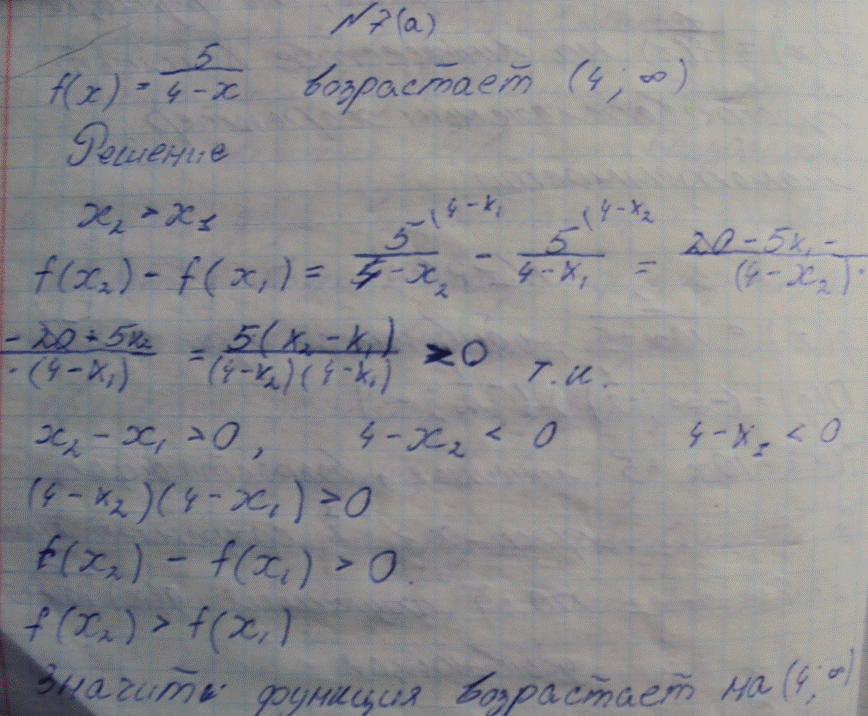 №7(а)
f(x) = 5/(4-x) возрастает (4; ∞)
Решение
x₂ > x₁
f(x₂) - f(x₁) = 5/(4-x₂) (4-x₁ - 5/(4-x₁) (4-x₂ = (20-5x₁-)/((4-x₂)·
(-20+5x₂)/(·(4-x₁)) = 5(x₂-x₁)/((4-x₂)(4-x₁)) >0 т.к.
x₂-x₁ >0, 4-x₂ < 0 4-x₁ < 0
(4-x₂)(4-x₁) >0
f(x₂) - f(x₁) > 0.
f(x₂) > f(x₁)
Значить функция возрастает на (4; ∞)